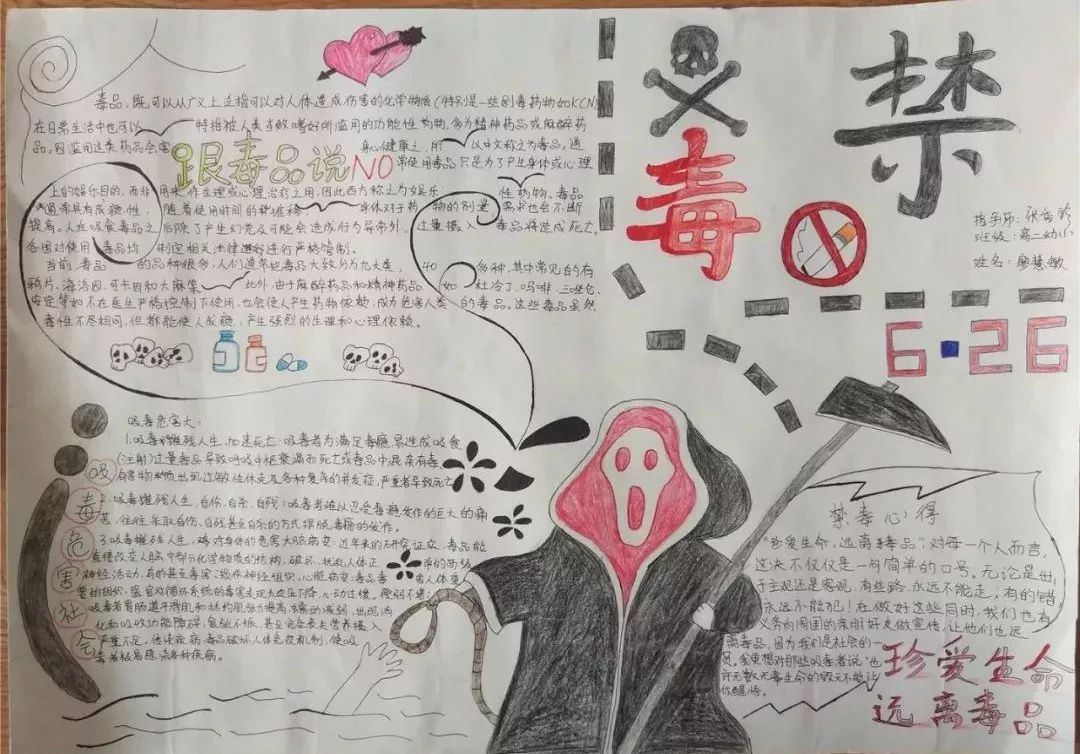 毒品,既可以从广义上泛指可以对人体造成伤害的化学物质(特别是一些剧毒药物如KCN)
在日常生活中也可以 特指被人类当做嗜好所滥用的功能性药物,多为精神药品或麻醉药
品。因滥用这类药品会害 身心健康之, 所 以中文称之为毒品。通
常使用毒品只是为了产生身体或心理
跟毒品说NO
上的娱乐目的,而非 用来 作生理或心理治疗之用,因此西方称之为娱乐 性药物。毒品
通常具有成瘾性, 随着使用时间的推移 身体对于药 物的剂量 需求也会不断
提高。人在吸食毒品之 后除了产生幻觉及可能会造成行为异常外, 过量摄入 毒品将造成死亡。
各国对使用 毒品均 制定相关法律进行严格管制。
当前,毒品 的品种很多,人们通常把毒品大致分为九大类, 40 多种,其中常见的有
鸦片、海洛因、可卡因和大麻等 此外,由于麻醉药品和精神药品 如 杜冷丁、吗啡、三唑仑、
安定等如不在医生严格控制下使用,也会使人产生药物依赖,成为危害人类 的毒品。这些毒品虽然
毒性不尽相同,但都能使人成瘾,产生强烈的生理和心理依赖。
禁
毒
指导师:张
班级:高二幼
姓名:廖慧敏
6·26
吸毒危害社会
吸毒危害大:
1.吸毒摧残人生,加速死亡:吸毒者为满足毒瘾,易造成吸食
(注射)过量毒品导致呼吸中枢衰竭而死亡或毒品中混杂有毒
有害物质出现过敏性休克及各种复杂的并发症,严重者导致死亡
2.吸毒摧残人生,自伤、自杀、自残:吸毒者难以忍受毒瘾发作的巨大的痛
苦,往往采取自伤、自残甚至自杀的方式摆脱毒瘾的发作。
3.吸毒摧残人生,吸对身体的危害大脑病变:近年来的研究证实,毒品能
直接改变人脑中部分化学物质的结构,破坏、扰乱人体正 常的高级
神经活动,有的甚至毒害、损伤神经组织。心脏病变:毒品毒 害人体重
化和吸收功能障碍,食欲不振,甚至完全丧失营养摄入
严重不足。传染疾病:毒品破坏人体免疫机制,使吸
毒者极易感染各种疾病。
禁毒心得
“珍爱生命,远离毒品”,对每一个人而言,
这决不仅仅是一句简单的口号。无论是出
于主观还是客观,有些路,永远不能走;有的错,
永远不能犯!在做好这些同时,我们也有
义务向周围的亲朋好友做宣传,让他们也远
离毒品,因为我们是社会的一
员。我更想对那些吸毒者说“也
许无数无毒生命的毁灭不能让
你醒悟。
珍爱生命
远离毒品